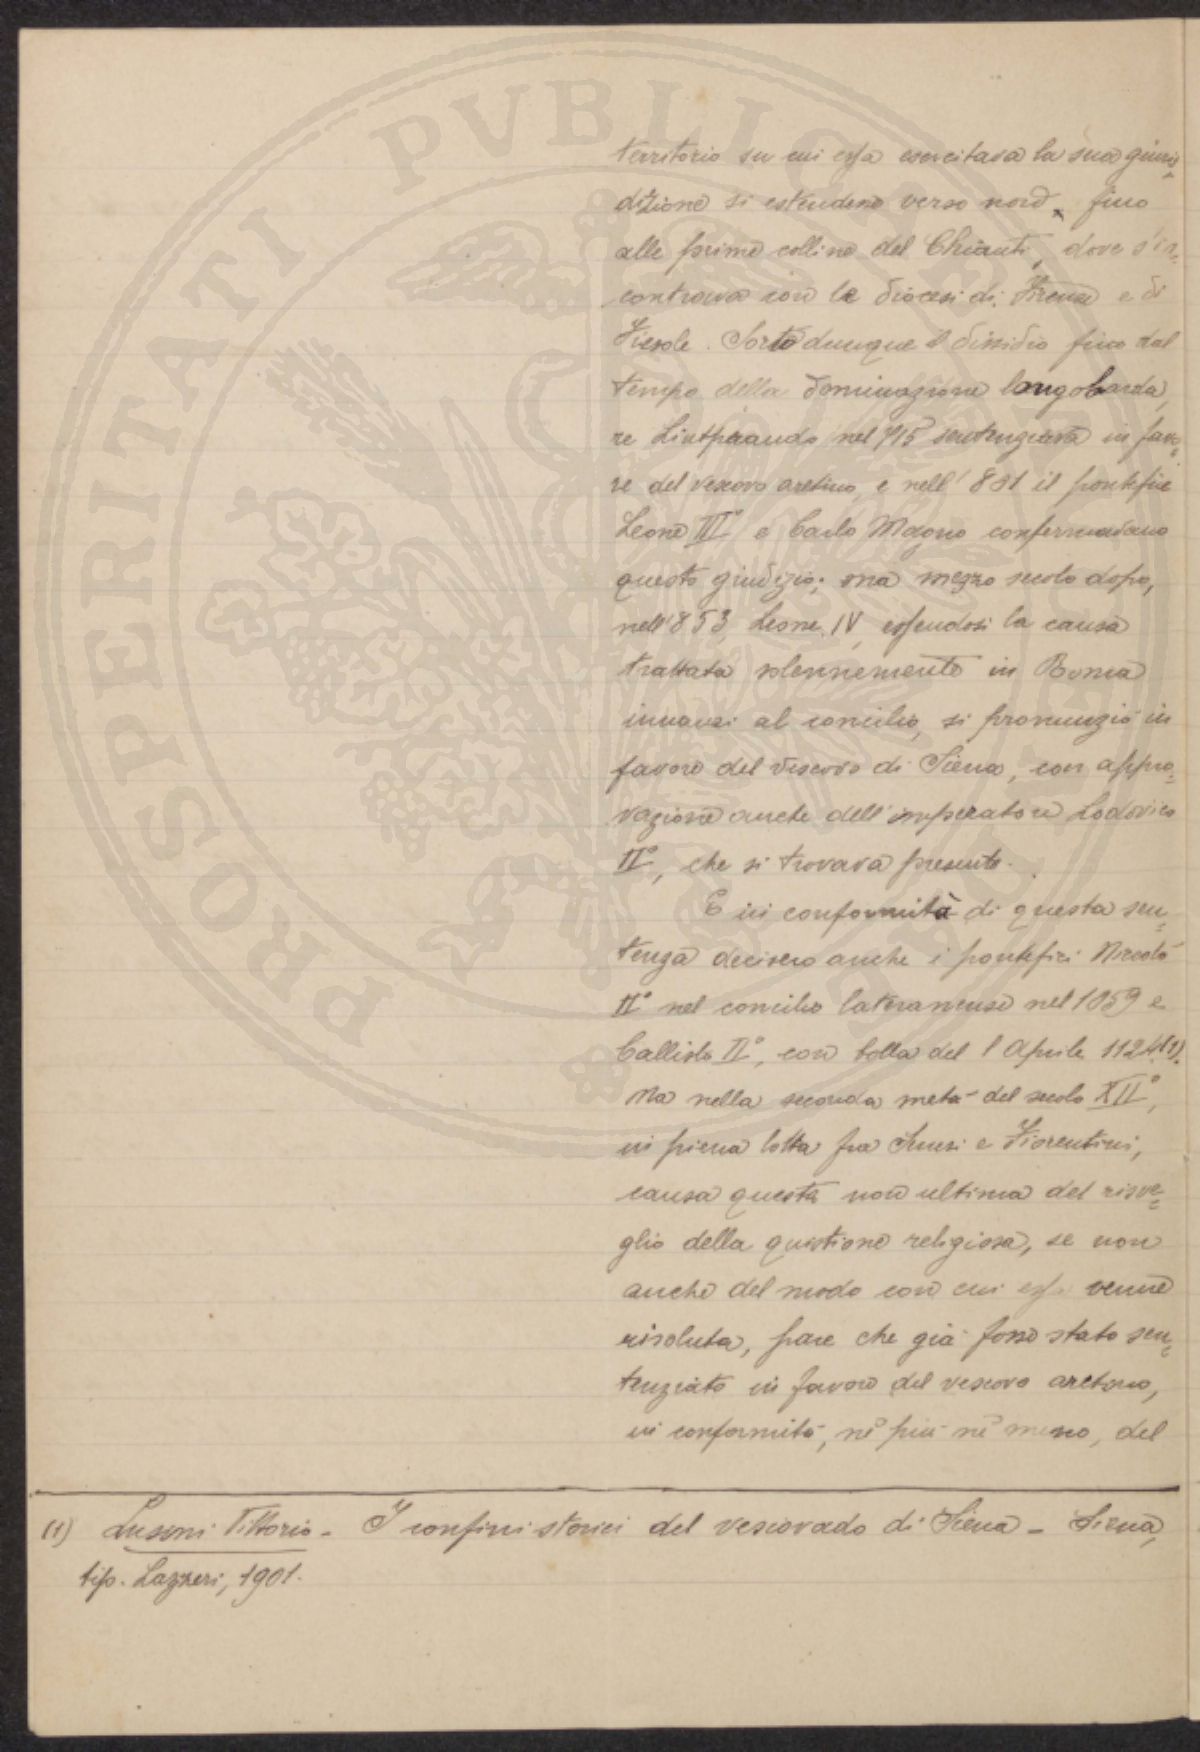 PROSPERITATI PVBLICAE
territorio su cui essa esercitava la sua giuris=
dizione si estendeva verso nord, fino
alle prime colline del Chianti, dove s'in=
contrava con le diocesi di Firenze e di
Fiesole. Sorto dunque il dissidio fino dal
tempo della dominazione longobarda,
re Liutprando nel 715 sentenziava in favo=
re del vescovo aretino, e nell'801 il pontefice
Leone III° e Carlo Magno confermavano
questo giudizio; ma mezzo secolo dopo,
nell'853, Leone IV, essendosi la causa
trattata solennemente in Roma
innanzi al concilio, si pronunziò in
favore del vescovo di Siena, con appro=
vazione anche dell'imperatore Lodovico
II°, che si trovava presente.
E in conformità di questa sen=
tenza decisero anche i pontefici Niccolò
II° nel concilio lateranense nel 1059 e
Callisto II°, con bolla del 1 Aprile 1124 (1).
Ma nella seconda metà del secolo XII°,
in piena lotta fra Senesi e Fiorentini,
causa questa non ultima del risve=
glio della questione religiosa, se non
anche del modo con cui essa venne
risoluta, pare che già fosse stato sen=
tenziato in favore del vescovo aretino,
in conformità, nè più nè meno, del
(1) Lusini Vittorio - I confini storici del vescovado di Siena - Siena,
tip. Lazzeri, 1901.